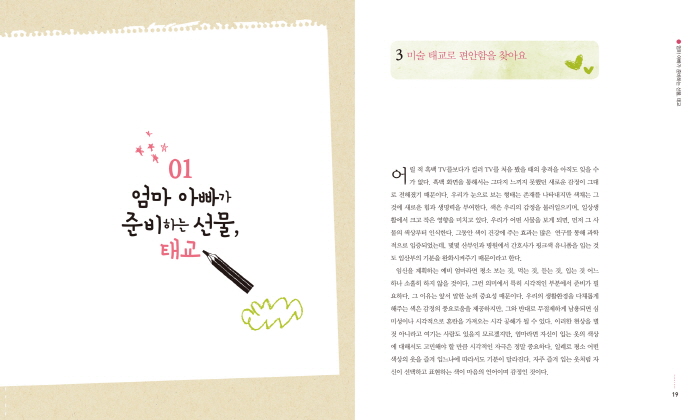 01
엄마 아빠가
준비하는 선물,
태교
3 미술 태교로 편안함을 찾아요
엄마 아빠가 준비하는 선물, 태교
어릴 적 흑백 TV를보다가 컬러 TV를 처음 봤을 때의 충격을 아직도 잊을 수
가 없다. 흑백 화면을 통해서는 그다지 느끼지 못했던 새로운 감정이 그대
로 전해졌기 때문이다. 우리가 눈으로 보는 형태는 존재를 나타내지만 색채는 그
것에 새로운 힘과 생명력을 부여한다. 색은 우리의 감정을 불러일으키며, 일상생
활에서 크고 작은 영향을 미치고 있다. 우리가 어떤 사물을 보게 되면, 먼저 그 사
물의 색상부터 인식한다. 그동안 색이 건강에 주는 효과는 많은 연구를 통해 과학
적으로 입증되었는데, 몇몇 산부인과 병원에서 간호사가 핑크색 유니폼을 입는 것
도 임산부의 기분을 완화시켜주기 때문이라고 한다.
임신을 계획하는 예비 엄마라면 평소 보는 것, 먹는 것, 듣는 것, 입는 것 어느
하나 소홀히 하지 않을 것이다. 그런 의미에서 특히 시각적인 부분에서 준비가 필
요하다. 그 이유는 앞서 말한 눈의 중요성 때문이다. 우리의 생활환경을 다채롭게
해주는 색은 감정의 풍요로움을 제공하지만, 그와 반대로 무절제하게 남용되면 심
미성이나 시각적으로 혼란을 가져오는 시각 공해가 될 수 있다. 이러한 현상을 별
것 아니라고 여기는 사람도 있을지 모르겠지만, 엄마라면 자신이 입는 옷의 색상
에 대해서도 고민해야 할 만큼 시각적인 자극은 정말 중요하다. 일례로 평소 어떤
색상의 옷을 즐겨 입느냐에 따라서도 기분이 달라진다. 자주 즐겨 입는 옷처럼 자
신이 선택하고 표현하는 색이 마음의 언어이며 감정인 것이다.
19